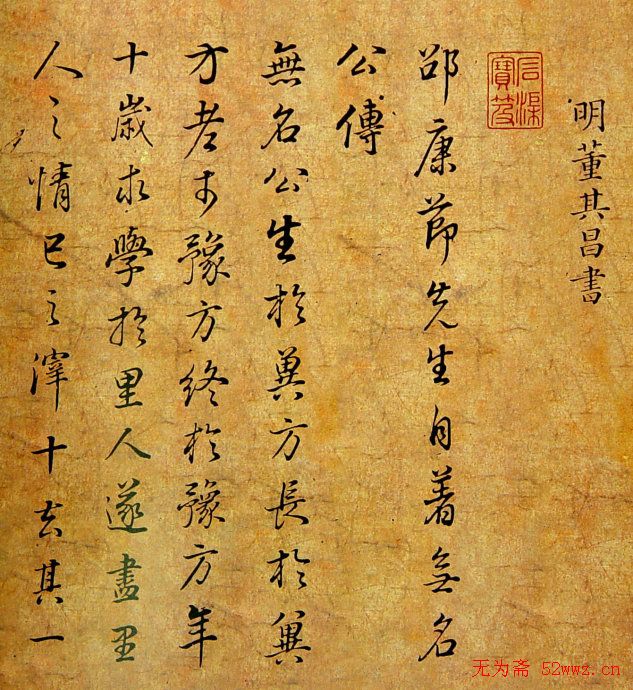 明董其昌書
石渠寶笈
邵康節先生自著無名
公傳
無名公生於冀方長於冀
方老於豫方終於豫方年
十歲求學於里人遂盡里
人之情己之滓十去其一
无为斋 52wwz.cn